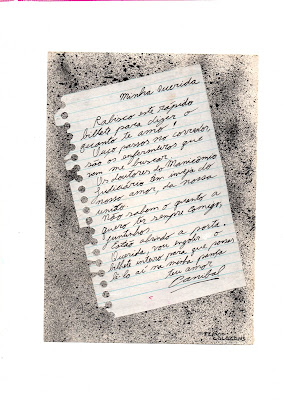 Minha Querida
Rabisco este rápido
bilhete para dizer o
quanto te amo!
Ouço passos no corredor,
são os enfermeiros que
vem me buscar.
Os doutores do Manicômio
Judiciário tem inveja do
nosso amor, da nossa
união.
Não sabem o quanto a
quero ter sempre comigo,
juntinhos.
Estão abrindo a porta.
Querida, vou engolir
bilhete inteiro para que possas
lê-lo aí na minha pança
teu amor
Canibal